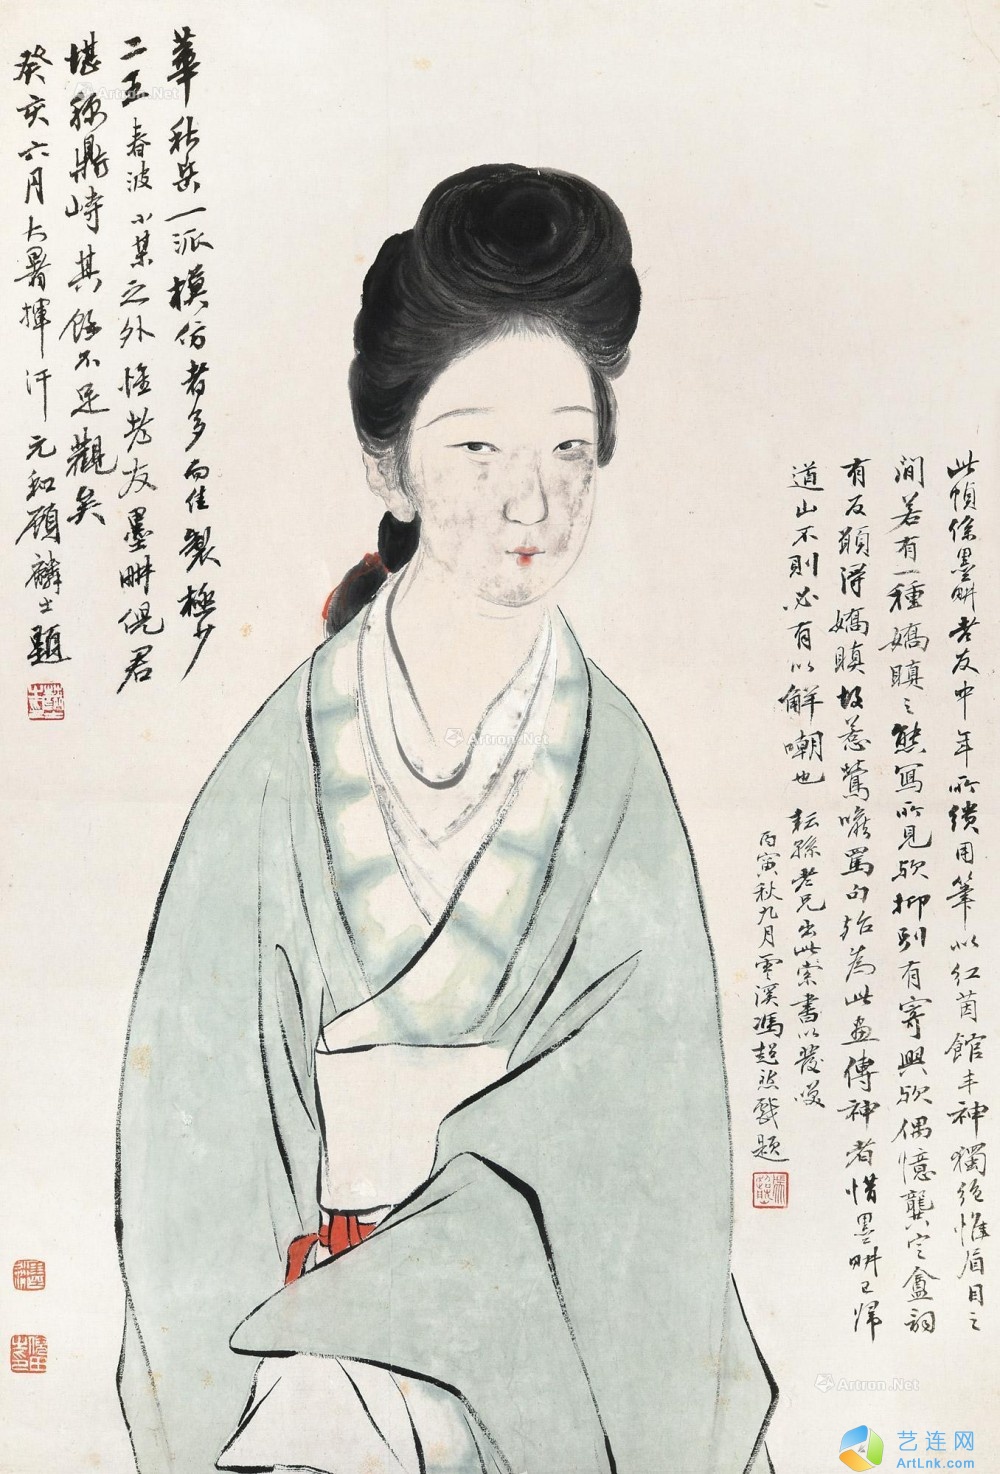 此幀係墨畊老友中年所繢用筆似紅茵館丰神獨絶惟眉目之
間若有一種嬌瞋之態寫所見歟抑別有寄興歟偶憶龔定盦詞
有反顰得嬌瞋故惹鶯嗔罵句殆為此畫傳神者惜墨畊已歸
道山不則必有以解嘲也 耘孫老兄出此索書以發噱
丙寅秋九月雲溪馮超然戲題
華秋岳一派模仿者多而佳製極少
二王春波小某之外惟老友墨畊倪君
堪稱鼎峙其餘不足觀矣
癸亥六月大暑揮汗元和顧麟士題
Artron.Net
Artron.Net
Artron.Net
艺连网
ArtLnk.com